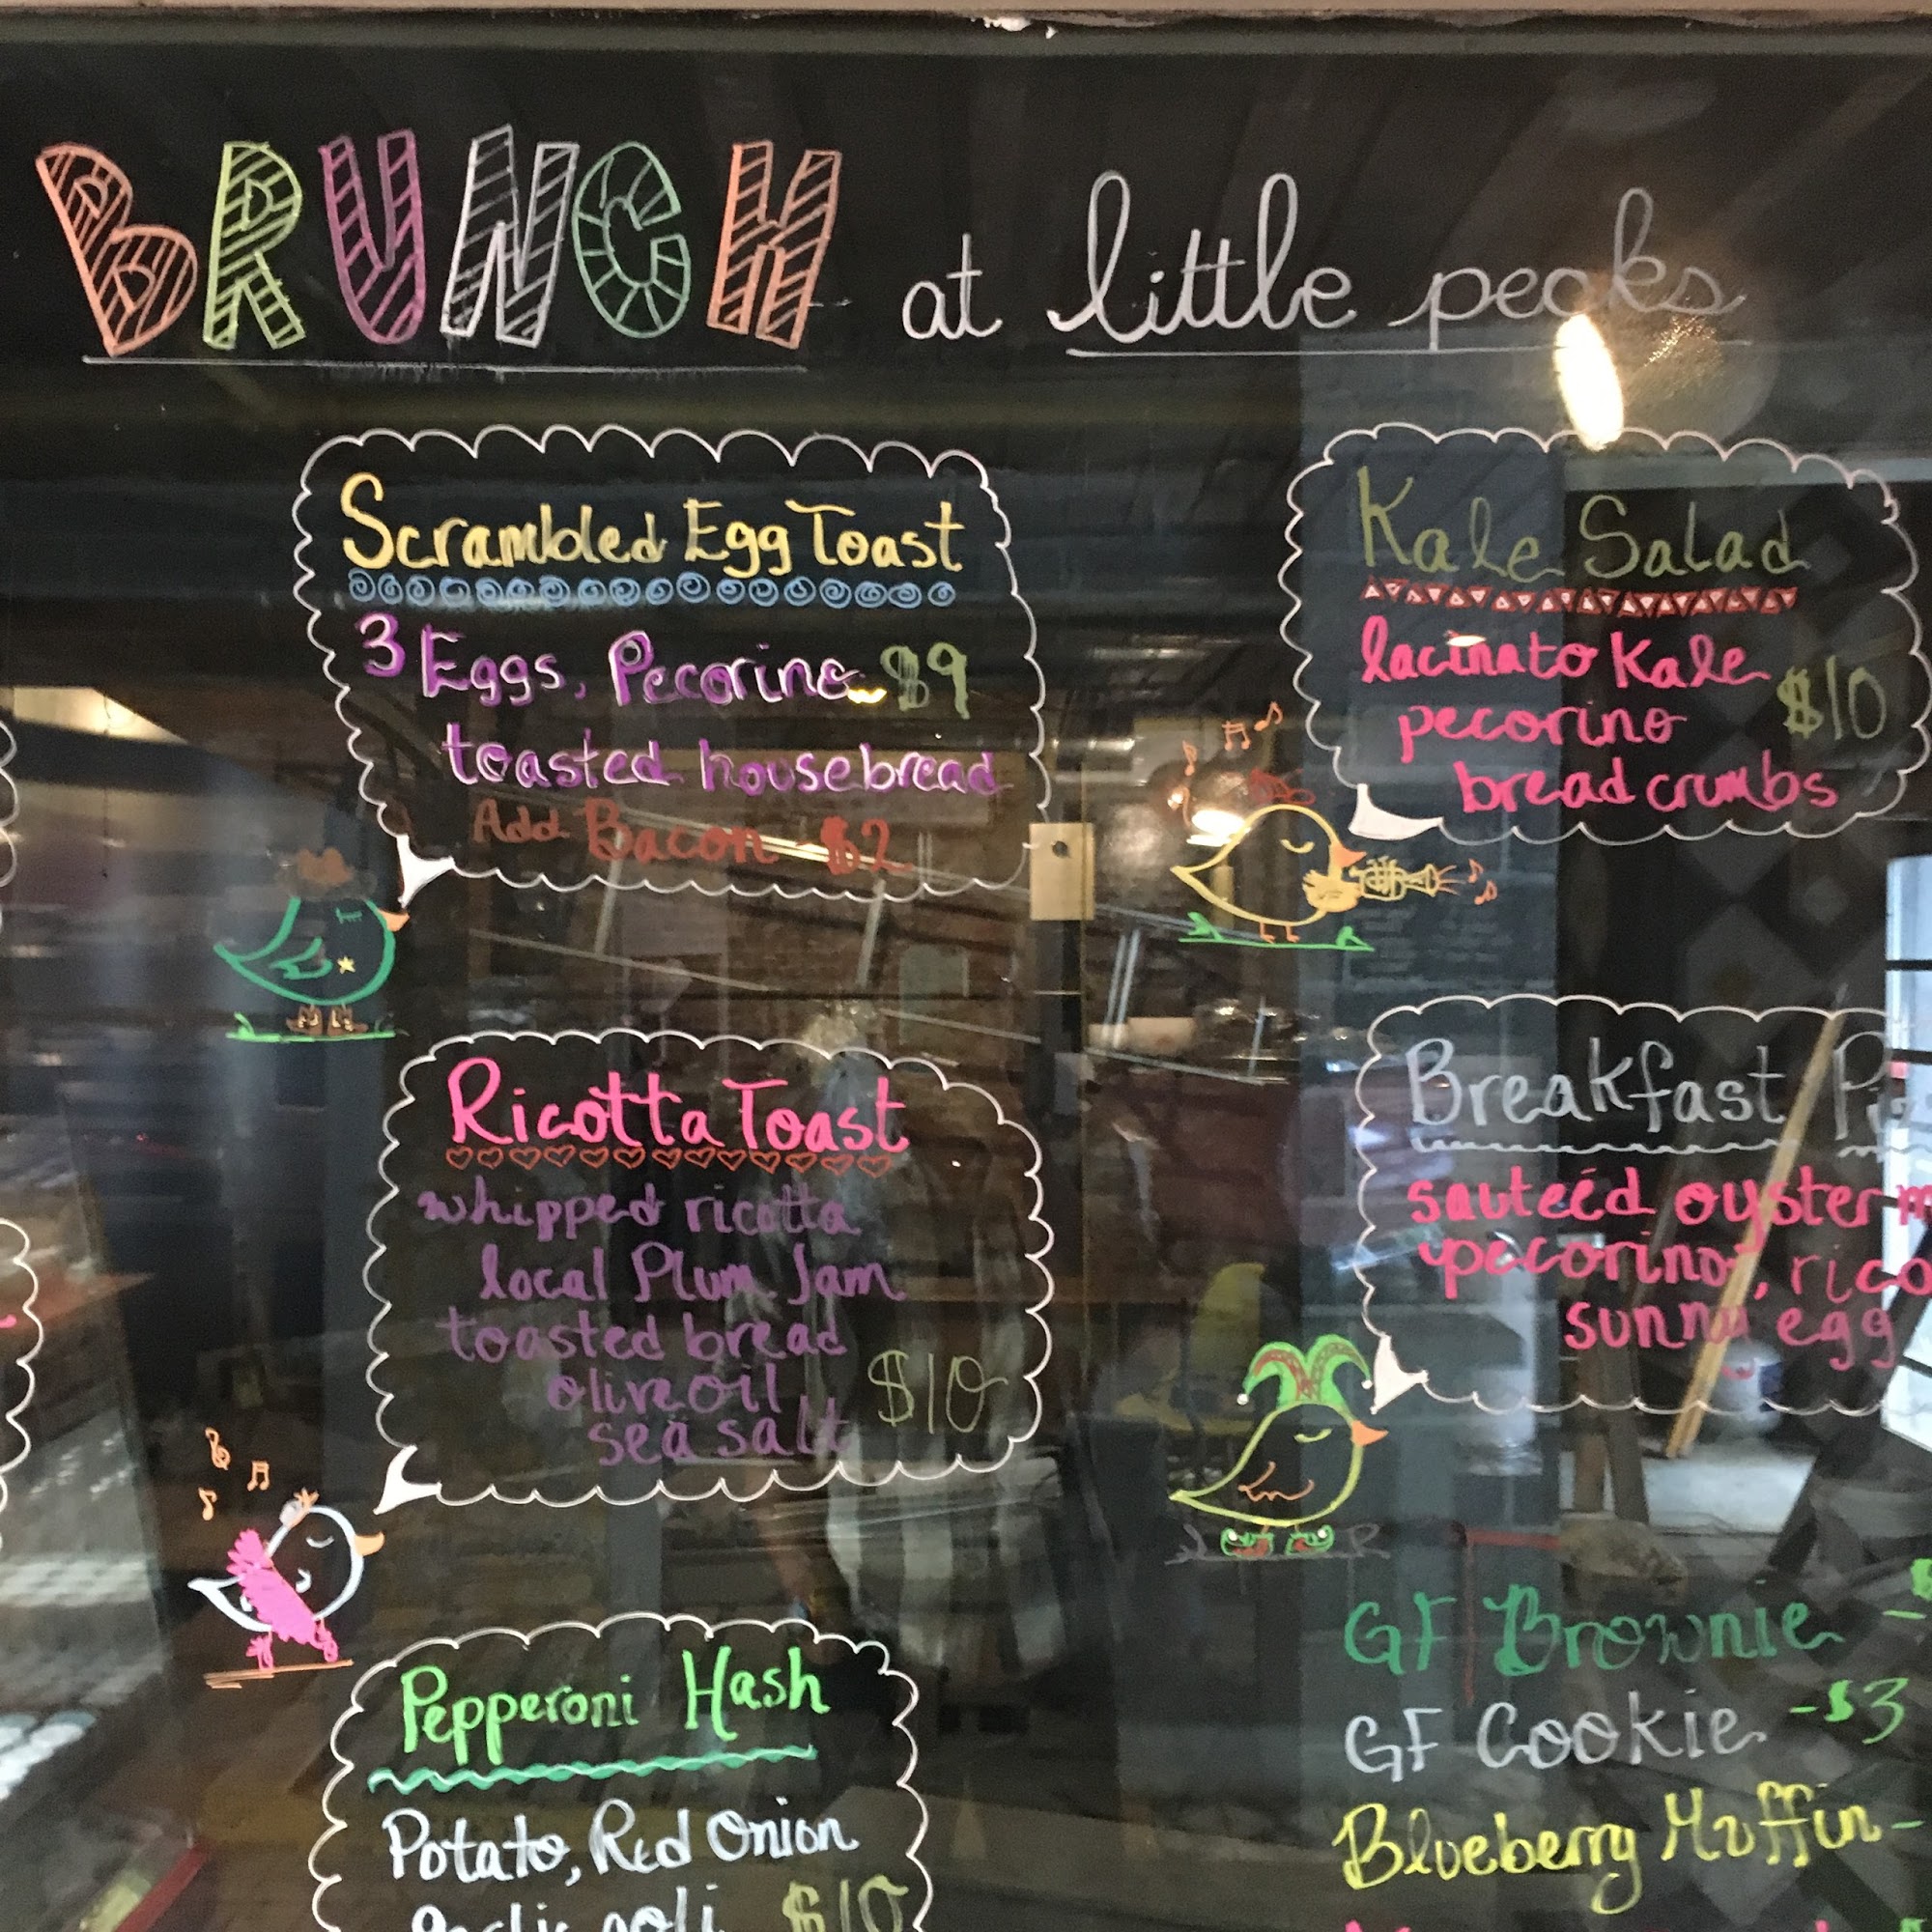 BRUNCH at little peaks
Scrambled Egg Toast
3 Eggs, Pecorino $9
toasted housebread
Add Bacon $2
Ricotta Toast
whipped ricotta
local Plum Jam
toasted bread
olive oil
sea salt $10
Pepperoni Hash
Potato, Red Onion
$10
Kale Salad
lacinato Kale
pecorino $10
bread crumbs
Breakfast
sauteéd oyster
pecorino,
sunny egg
GF Brownie -
GF Cookie -$3
Blueberry Muffin -